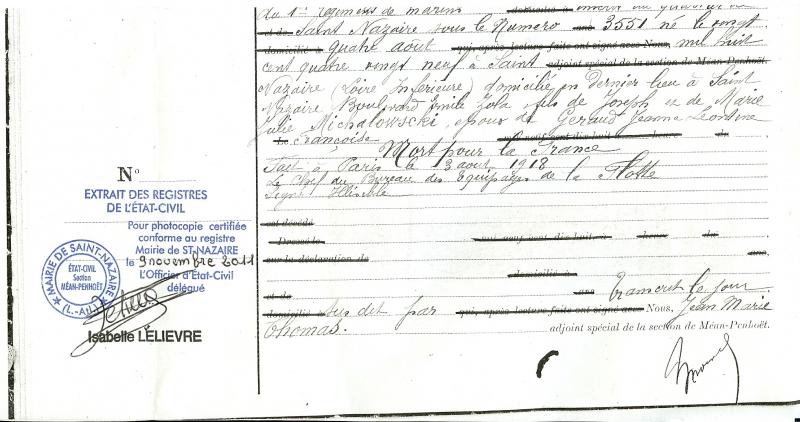 du 1er régiment de marins domicilié à inscrit au quartier de
et de Saint Nazaire sous le Numéro ans 3551 né le vingt
domicilié à quatre août qui, après lecture faite ont signé avec Nous, mil huit
cent quatre vingt neuf à Saint adjoint spécial de la section de Méan-Penhoët.
Nazaire (Loire Inférieure) domicilié en dernier lieu à Saint
Nazaire Boulevard Emile Zola, fils de Joseph et de Marie
Julie Michalowscki, époux de Geraud Jeanne Léontine
Le Françoise mil neuf cent dix huit à heure du
Mort pour la France
Fait à Paris le 3 août 1918
Le Chef du Bureau des Equipages de la Flotte
Signé Illisible
est décédé
Domicilié mil neuf cent dix huit à heure du
sur la déclaration de ans
domicilié à
et de ans Transcrit le jour
domicilié susdit par qui, après lecture faite ont signé avec Nous, Jean Marie
Thomas. adjoint spécial de la section de Méan-Penhoët.
N°
EXTRAIT DES REGISTRES
DE L'ÉTAT-CIVIL
Pour photocopie certifiée
conforme au registre
Mairie de ST-NAZAIRE
le 9 novembre 2011
L'Officier d'État-Civil
délégué
MAIRIE DE SAINT-NAZAIRE
ÉTAT-CIVIL
Section
MÉAN-PENHOËT
(L.-Atl.)
Isabelle LELIEVRE